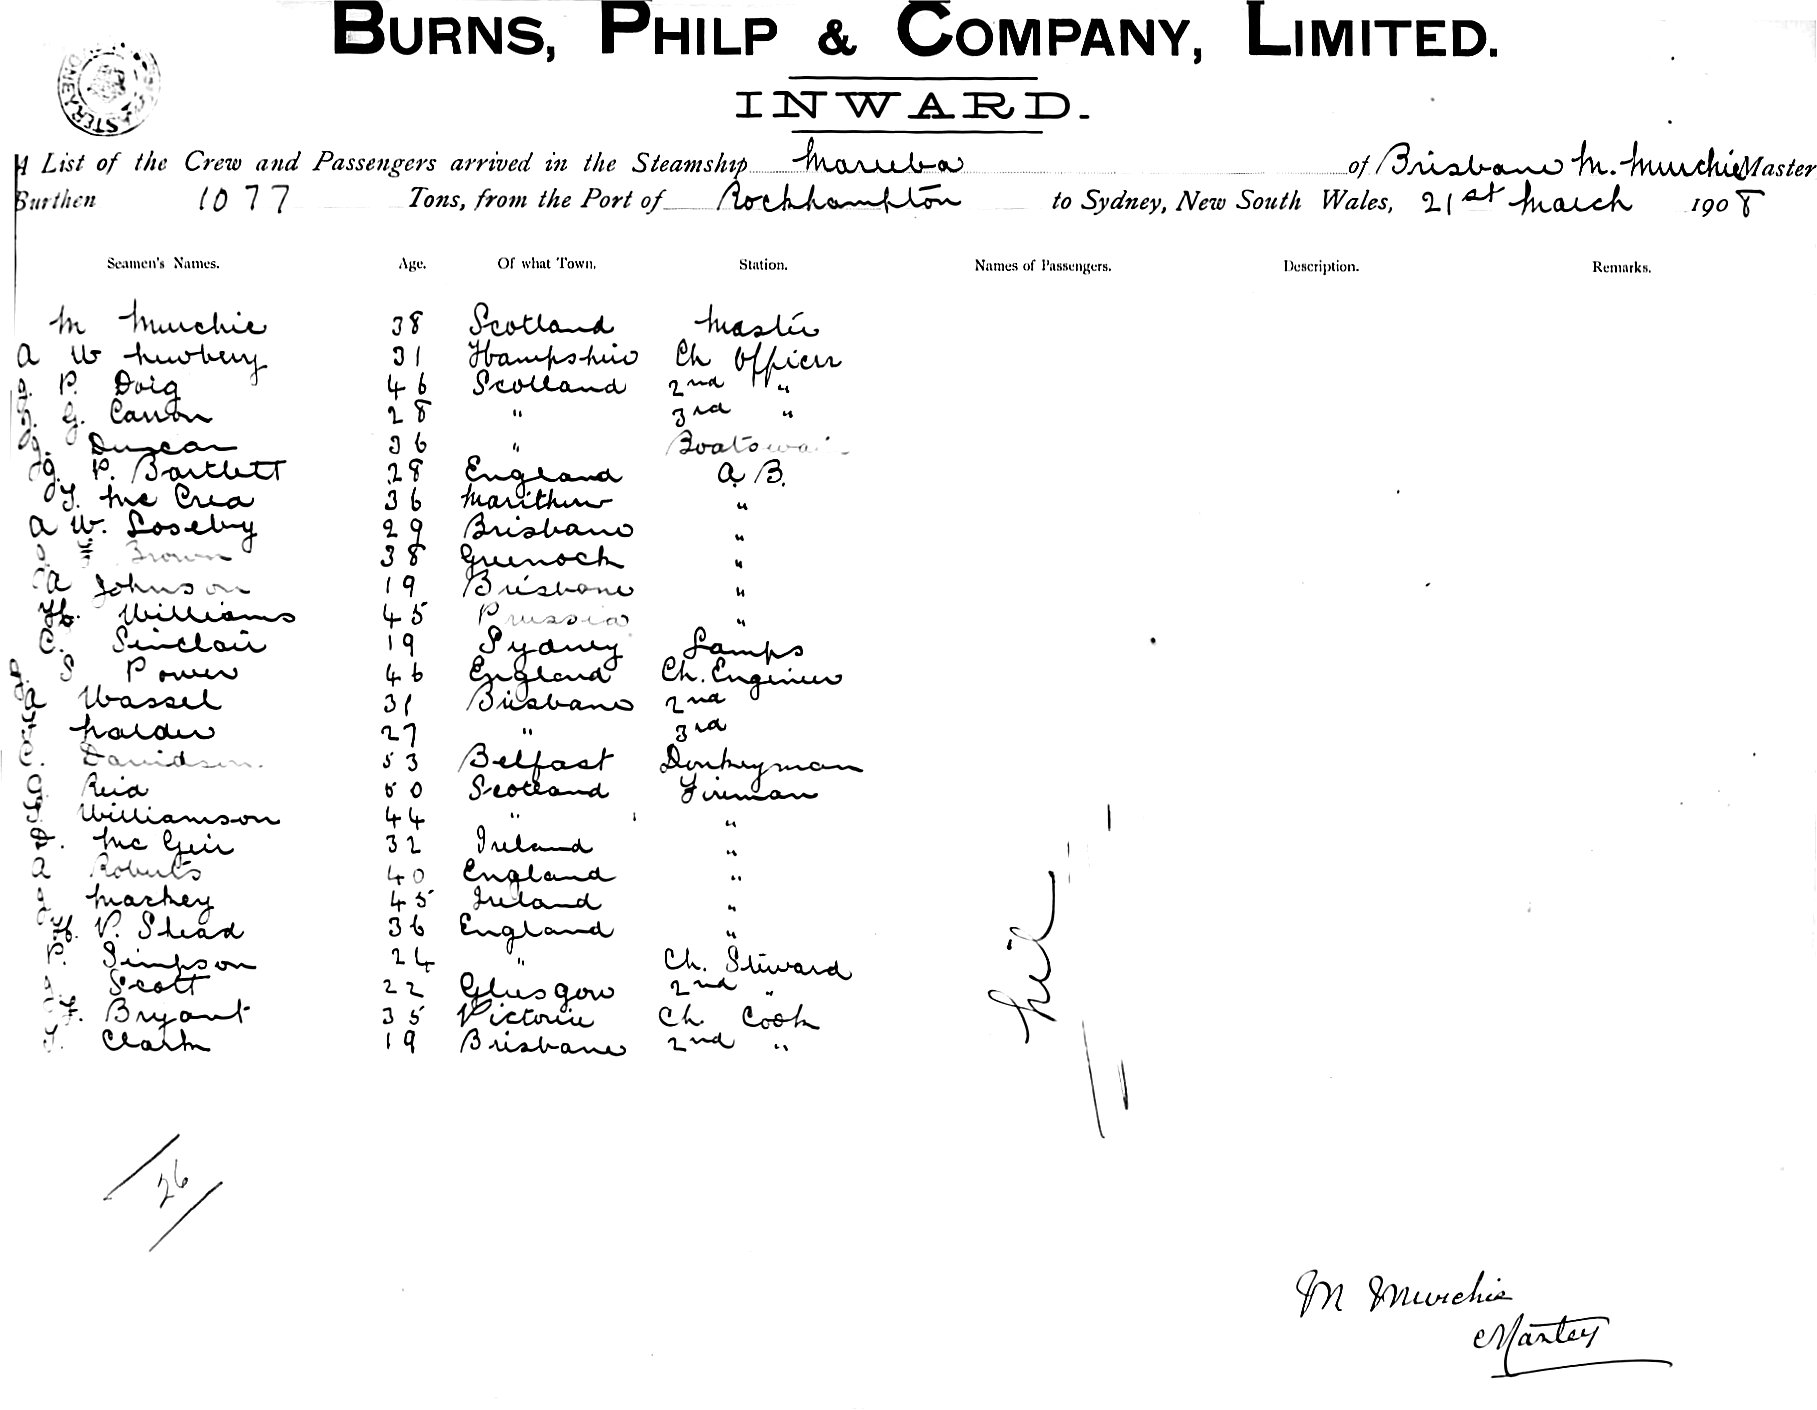 BURNS, PHILP & COMPANY, LIMITED.
INWARD.
A List of the Crew and Passengers arrived in the Steamship Maruba of Brisbane M. Murchie Master
Burthen 1077 Tons, from the Port of Rockhampton to Sydney, New South Wales, 21st March 1908
Seamen's Names. Age. Of what Town. Station. Names of Passengers. Description. Remarks.
M Murchie 38 Scotland Master
A W Newbery 31 Hampshire Ch Officer
J. P. Doig 46 Scotland 2nd "
G. Carron 28 " 3rd "
J. Duncan 36 " Boatswain
J. P. Bartlett 28 England A.B.
T. McCrea 36 "
A W. Loseby 29 Brisbane "
Brown 38 Greenock "
A Johnson 19 Brisbane "
H. Williams 45 Prussia "
C. Sinclair 19 Sydney Lamps
J. S Power 46 England Ch. Engineer
A Wassel 31 Brisbane 2nd
27 " 3rd
C. Davidson. 53 Belfast Donkeyman
Reid 50 Scotland Fireman
Williamson 44 " "
D. McGeir 32 Ireland "
A Roberts 40 England "
J Mackey 45 Ireland "
H. V. Stead 36 England "
P. Simpson 24 " Ch. Steward
J. Scott 22 Glasgow 2nd "
F. Bryant 35 Victoria Ch Cook
T. Clark 19 Brisbane 2nd "
Nil
26
M Murchie
Master